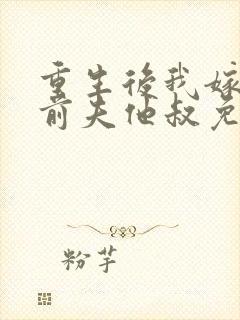 重生後我嫁
前夫他叔免
粉芋